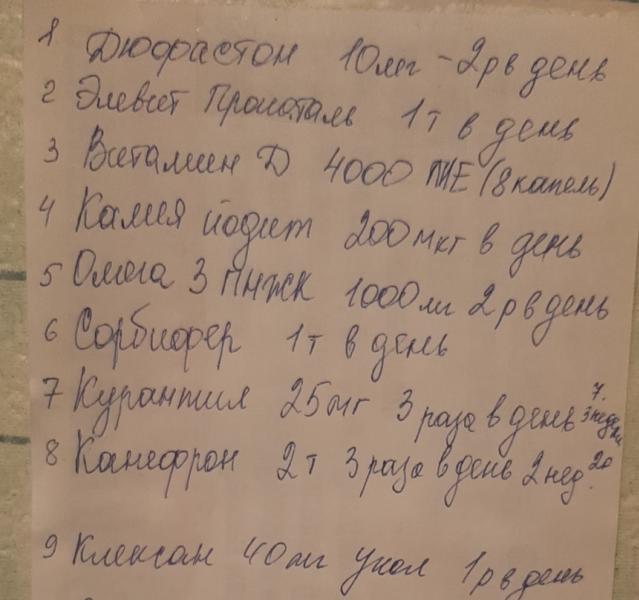 1 Дюфастон 10мг - 2р в день
2 Элевит Пронаталь 1т в день
3 Витамин Д 4000 МЕ (8 капель)
4 Калия йодит 200 мкг в день
5 Омега 3 ПНЖК 1000мг 2р в день
6 Сорбифер 1т в день
7 Курантил 25мг 3 раза в день 7. 3 недели
8 Канефрон 2т 3 раза в день 2 нед. 20
9 Клексан 40мг укол 1р в день